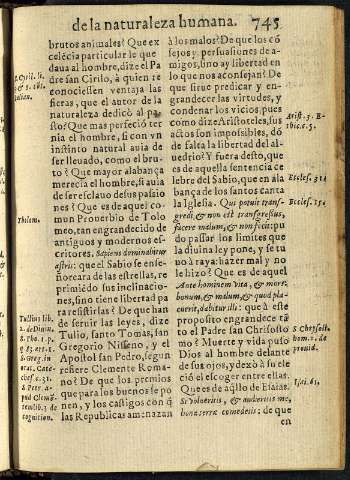 de la naturaleza humana. 745
brutos animales? Que ex
celēcia particular le que
daua al hombre, dize el Pa
dre san Cirilo, à quien re
conociessen ventaja las
fieras, que el autor de la
naturaleza dedicò al pa-
sto? Que mas perfeciõ ter
nia el hombre, si con vn
instinto natural auia de
ser lleuado, como el bru-
to? Que mayor alabança
merecia el hombre, si auia
de ser esclauo de sus passio
nes? Que es de aquel co-
mun Prouerbio de Tolo
meo, tan engrandecido de
antiguos y modernos es-
critores. Sapiens dominabitur
astris: que el Sabio se ense-
ñorea de las estrellas, re
primiēdo sus inclinacio-
nes, sino tiene libertad pa
ra resistirlas? De que han
de seruir las leyes, dize
Tulio, santo Tomas, san
Gregorio Nisseno, y el
Apostol san Pedro, segun
refiere Clemente Roma-
no? De que los premios
que para los buenos se po
nen, y los castigos con q̄
las Republicas amenazan
S. Cyril. li.
Iulian.
Tholom.
Tullius lib.
2. de Diuin.
S. Tho. 1. p.
q. 83. art. 1.
S. Greg. in
orat. Cate-
chef. c. 31.
S. Petr. a-
pud Clemē
tem lib. 3. de
cognition.
à los malos? De que los cō
sejos y persuasiones de a-
migos, sino ay libertad en
lo que nos aconsejan? De
que sirue predicar y en-
grandecer las virtudes, y
condenar los vicios, pues
como dize Aristoteles, sus
actos son impossibles, dō
de falta la libertad del al-
uedrio? Y fuera desto, que
es de aquella sentencia ce
lebre del Sabio, que en ala
bança de los santos canta
la Iglesia. Qui potuit trans-
gredi, & non est transgressus,
facere malum, & non fecit: pu
do passar los limites que
la diuina ley pone, y se tu
uo à raya: hazer mal y no
le hizo? Que es de aquel
Ante hominem vita, & mors,
bonum, & malum, & quod pla-
cuerit, dabitur illi: que à este
proposito engrandece tā
to el Padre san Chrisosto
mo? Muerte y vida puso
Dios al hombre delante
de sus ojos, y dexò à su ele
ciò el escoger entre ellas.
Que es de aq̄llo de Esaias.
Si volueritis, & audieritis me,
bona terræ comedetis: de que
en
Arist. 3. E-
thic. c. 5.
Eccles. 31
Eccles. 15.
S. Chrysost.
hom. 2. de
prouid.